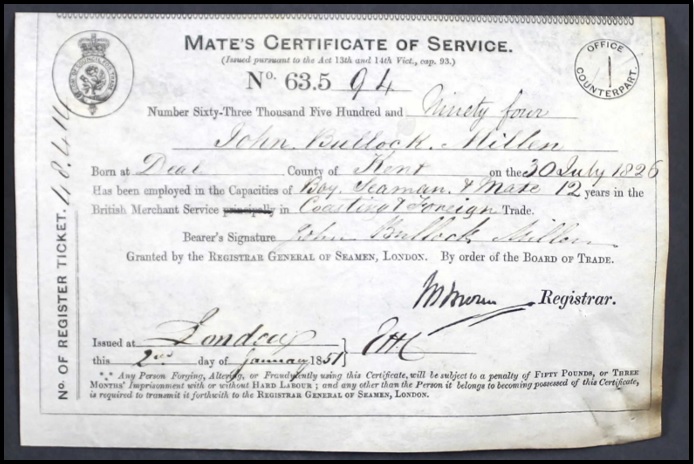 MATE'S CERTIFICATE OF SERVICE.
(Issued pursuant to the Act 13th and 14th Vict., cap. 93.)
OFFICE COUNTERPART.
No. 63.5 94
Number Sixty-Three Thousand Five Hundred and Ninety four
John Bullock Millen
Born at Deal County of Kent on the 30 July 1826
Has been employed in the Capacities of Boy, Seaman & Mate 12 years in the
British Merchant Service principally in Coasting & Foreign Trade.
Bearer's Signature John Bullock Millen
Granted by the REGISTRAR GENERAL OF SEAMEN, LONDON. By order of the BOARD OF TRADE.
Registrar.
Issued at London
this 2nd day of January 1851
*** Any Person Forging, Altering, or Fraudulently using this Certificate, will be subject to a penalty of FIFTY POUNDS, or THREE
MONTHS' Imprisonment with or without HARD LABOUR; and any other than the Person it belongs to becoming possessed of this Certificate,
is required to transmit it forthwith to the REGISTRAR GENERAL OF SEAMEN, LONDON.
No. OF REGISTER TICKET.